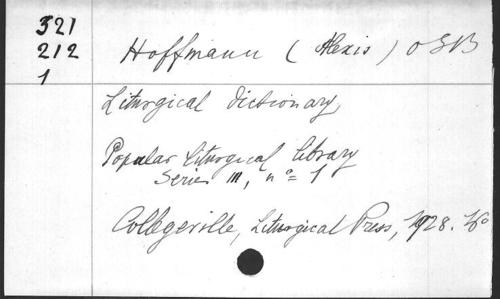 321
212
1
Hoffmann (Alexis) OSB
Liturgical Dictionary,
Popular Liturgical Library
Series III, n° = 1
Collegeville, Liturgical Press, 1928.